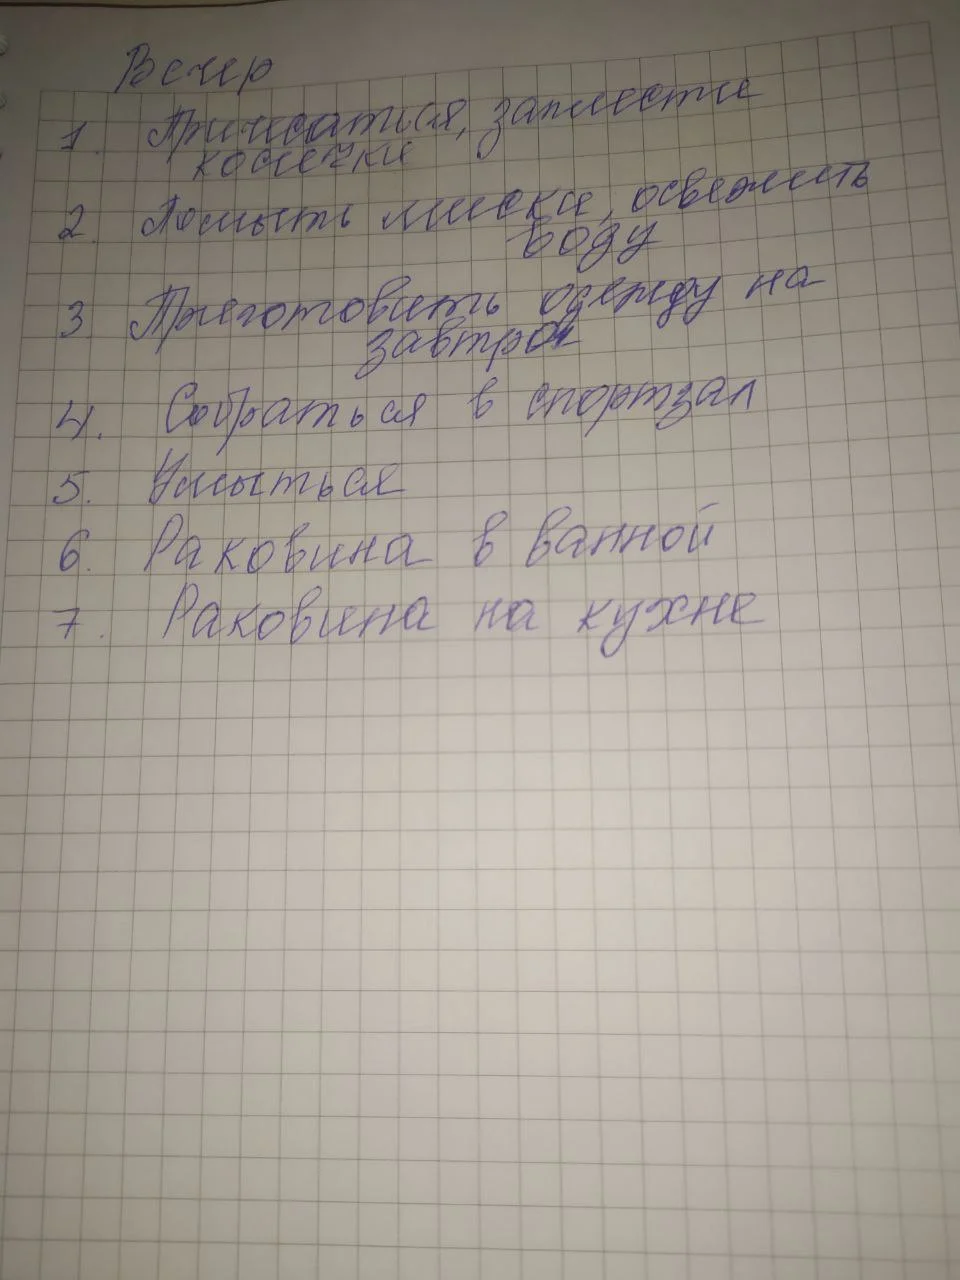 Вечер
1. Причесаться, заплести
косички
2. Помыть миски, освежить
воду
3. Приготовить одежду на
завтра
4. Собраться в спортзал
5. Умыться
6. Раковина в ванной
7. Раковина на кухне